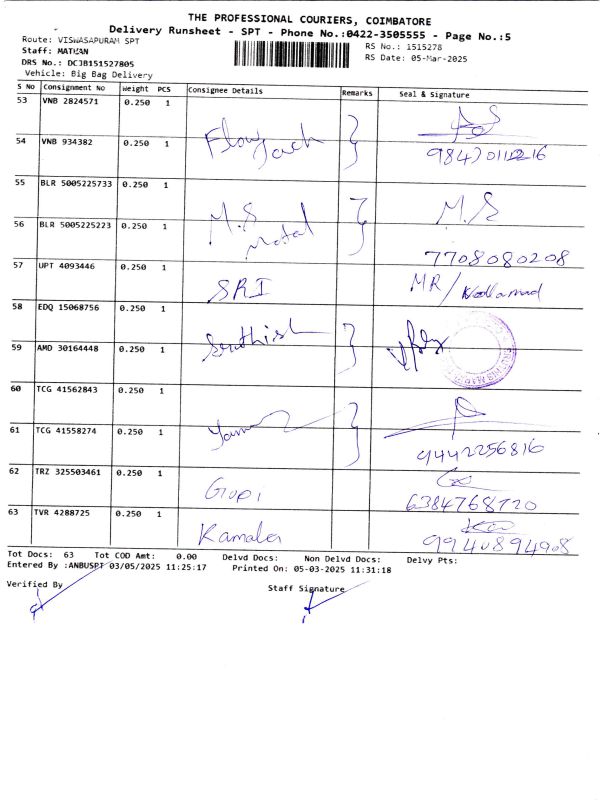 THE PROFESSIONAL COURIERS, COIMBATORE
Delivery Runsheet - SPT - Phone No.:0422-3505555 - Page No.:5
Route: VISWASAPURAM SPT
RS No.: 1515278
Staff:
RS Date: 05-Mar-2025
DRS No.: DCJB151527805
Vehicle: Big Bag Delivery
S No Consignment No Weight PCS Consignee Details Remarks Seal & Signature
53 VNB 2824571 0.250 1
54 VNB 934382 0.250 1
55 BLR 5005225733 0.250 1 M.S M.S
56 BLR 5005225223 0.250 1 7708080208
57 UPT 4093446 0.250 1 SRI MR/
58 EDQ 15068756 0.250 1
59 AMD 30164448 0.250 1
60 TCG 41562843 0.250 1
61 TCG 41558274 0.250 1 9442256816
62 TRZ 325503461 0.250 1 Gopi 6384768720
63 TVR 4288725 0.250 1 Kamala 9940894908
Tot Docs: 63 Tot COD Amt: 0.00 Delvd Docs: Non Delvd Docs: Delvy Pts:
Entered By :ANBUSPT 03/05/2025 11:25:17 Printed On: 05-03-2025 11:31:18
Verified By Staff Signature